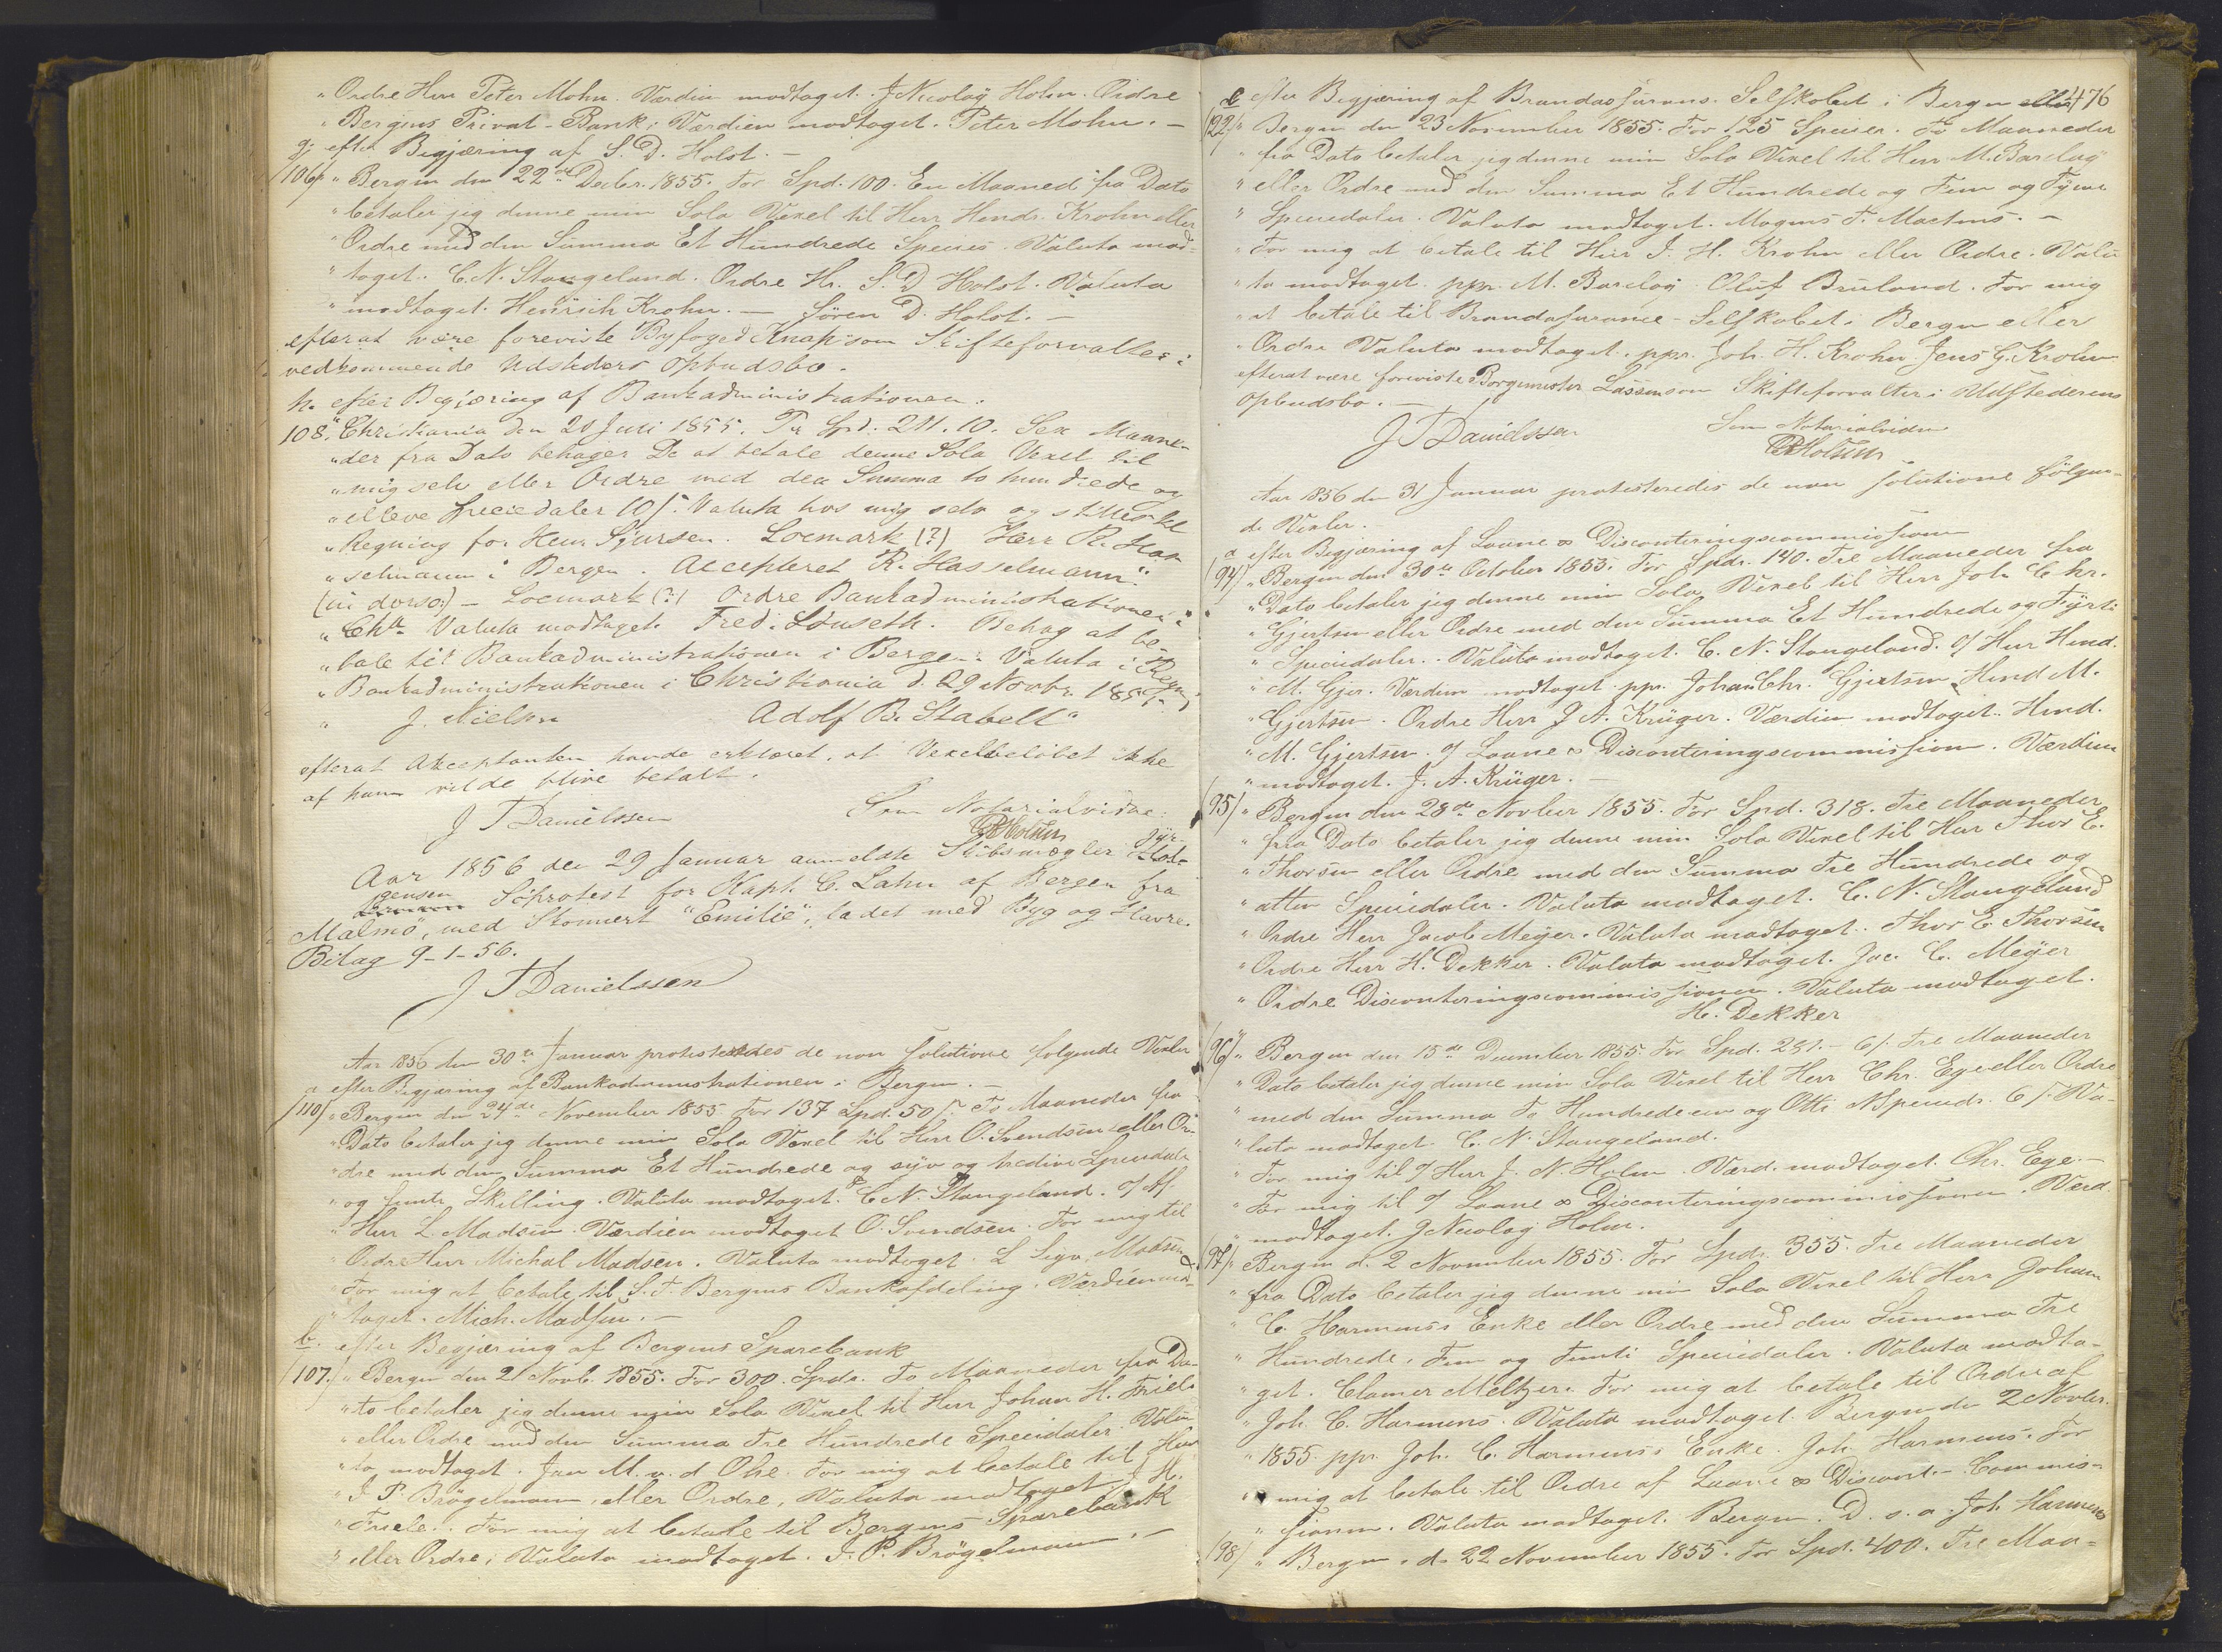 „Ordre Herr Peter Mohn. Værdien modtaget. J Nicolaÿ Holm. Ordre
„Bergens Privat-Bank; Værdien modtaget. Peter Mohn. —
g; efter Begjæring af S. D. Holst. —
/106/. „Bergen den 22de Decbr. 1855. For Spd. 100. En Maaned fra Dato
„betaler jeg denne min Sola Vexel til Herr Hendr. Krohn eller
„Ordre med den Summa Et Hundrede Species. Valuta mod-
„taget. C. N. Stangeland. Ordre Hr. S. D Holst. Valuta
„modtaget. Henrich Krohn. — Sören D. Holst. —
efterat være foreviste Byfoged Knap som Skifteforvalter i
vedkommende Udsteders Opbudsbo.
h. efter Begjæring af Bankadministrationen.
108. „Christiania den 20 Juli 1855. For Spd. 211. 10. Sex Maane-
„der fra Dato behager De at betale denne Sola Vexel til
„mig selv eller Ordre med den Summa to hundrede og
„elleve Speciedaler 10 ſ. Valuta hos mig selv og stilles til
„Regning for Henr. Sjursen. Locmark (?) Herr R. Has-
„selmann i Bergen. Accepteret R. Hasselmann.“
(in dorso:) — Locmark (?) Ordre Bankadministrationen i
„Cha. Valuta modtaget. Fred. Lönseth. Behag at be-
„tale til Bankadministrationen i Bergen. Valuta i Regn.
„Bankadministrationen i Christiania d. 29 Novbr. 1855.
„ J. Nielsen Adolf B. Stabell“
efterat Akceptanten havde erklæret, at Vexelbelöbet ikke
af ham vilde blive betalt.
J T Danielssen Som Notarialvidne:
Aar 1856 den 29 Januar anmeldte Skibsmægler Jör-
gensen Söprotest for Kapt. C. Lahn af Bergen fra
Malmö, med Skonnert “Emilie”, ladet med Byg og Havre.
Bilag 9-1-56.
J T Danielssen
Aar 1856 den 30te Januar protesteredes de non solutione følgende Vexler
a efter Begjæring af Bankadministrationen i Bergen. —
/110/ „Bergen den 24de November 1855. For 137 Spd. 50 ſ. To Maaneder fra
„Dato betaler jeg denne min Sola Vexel til Herr O. Svendsen eller Or-
„dre med den Summa Et Hundrede og syv og tredive Speciedaler
„og femti Skilling. Valuta modtaget. C N. Stangeland.
„Herr L. Madsen. Værdien modtaget O. Svendsen. For mig til
„Ordre Herr Michal Madsen. Valuta modtaget. L Madsen
„For mig at betale til S. T. Bergens Bankafdeling. Værdien mod-
„taget. Mich. Madsen. —
b. efter Begjæring af Bergens Sparebank
/107/ „Bergen den 21 Novb. 1855. For 300. Spdr. To Maaneder fra Da-
„to betaler jeg denne min Sola Vexel til Herr Johan H. Friele
„eller Ordre med den Summa Tre Hundrede Speciedaler. Valu-
„ta modtaget. Jan M. v. d Ohe. For mig at betale til Herr
„J. P. Brögelmann, eller Ordre, Valuta modtaget J. H.
„Friele. For mig at betale til Bergens Sparebank
„eller Ordre; Valuta modtaget. J. P. Brögelmann. —
476
c efter Begjæring af Brandassurance-Selskabet i Bergen
/122/ „Bergen den 23 November 1855. For 125 Specier. To Maaneder
„fra Dato betaler jeg denne min Sola Vexel til Herr M. Barclaÿ
„eller Ordre med den Summa Et Hundrede og Fem og Tyve
„Speciedaler. Valuta modtaget. Magens T. Martens. —
„For mig at betale til Herr J. H. Krohn eller Ordre. Valu
„ta modtaget. ppr. M. Barclaÿ Oluf Bruland. For mig
„at betale til Brandassurance-Selskabet i Bergen eller
„Ordre Valuta modtaget. ppr. Joh. H. Krohn. Jens G. Krohn
efterat være foreviste Borgemester Lassen som Skifteforvalter i Udstederens
Opbudsbo. —
J T Danielssen Som Notarialvidne
Aar 1856 den 31 Januar protesteredes de non solutione følgen-
de Vexler.
a efter Begjæring af Laane & Disconteringscommission
/94/ „Bergen den 30te October 1855. For Spdr. 140. Tre Maaneder fra
„Dato betaler jeg denne min Sola Vexel til Herr Joh. Chr.
„Gjertsen eller Ordre med den Summa Et Hundrede og Fyrti
„Speciedaler. Valuta modtaget. C. N. Stangeland. Herr Hend.
„M. Gjer. Værdien modtaget ppr. Johan Chr. Gjertsen Hend M.
„Gjertsen. Ordre Herr J A. Krüger. Værdien modtaget. Hend.
„M. Gjertsen. Laane & Disconteringscommission. Værdien
„modtaget. J. A. Krüger. —
/95/ „Bergen den 28de Novber 1855. For Spd. 318. Tre Maaneder
„fra Dato betaler jeg denne min Sola Vexel til Herr Thor E.
„Thorsen eller Ordre med den Summa Tre Hundrede og
„atten Speciedaler. Valuta modtaget. C. N. Stangeland
„Ordre Herr Jacob Meÿer. Valuta modtaget. Thor E. Thorsen
„Ordre Herr H. Dekker. Valuta modtaget. Jac. C. Meÿer
„Ordre Disconteringscommissionen. Valuta modtaget.
H. Dekker
/96/ „Bergen den 15de December 1855. For Spd. 281. — 6 ſ. Tre Maaneder
„Dato betaler jeg denne min Sola Vexel til Herr Chr. Ege eller Ordre
„med den Summa To Hundrede een og Otti Speciedr. 6 ſ. Va-
„luta modtaget. C. N. Stangeland.
„For mig til Herr J. N. Holm. Værd. modtaget. Chr. Ege. —
„For mig til Laane & Disconteringscommissionen. Værd.
„modtaget. J Nicolaÿ Holm.
/97/ „Bergen d. 2 November 1855. For Spdr. 355. Tre Maaneder
„fra Dato betaler jeg denne min Sola Vexel til Herr Johan
„C. Harmens's Enke eller Ordre med den Summa Tre
„Hundrede, Fem og Femti Speciedaler. Valuta modta-
„get. Clamer Meltzer. For mig at betale til Ordre af
„Joh. C. Harmens. Valuta modtaget. Bergen den 2 Novber.
„1855. ppr. Joh. C. Harmens's Enke. Joh. Harmens. For
„mig at betale til Ordre af Laane & Discont.-Commis-
„sionen. Valuta modtaget. Bergen. D. s. a Joh. Harmens
/98/ „Bergen. d. 22 November 1855. For Spd. 400. Tre Maa=